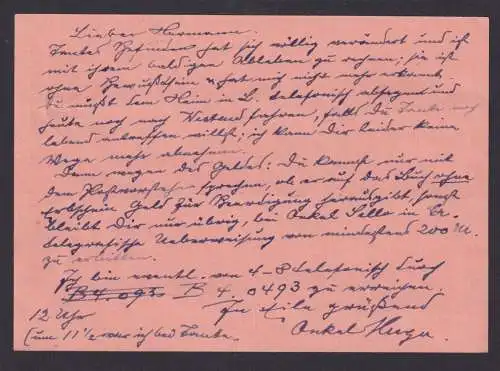 Lieber Hermann.
Tantes Befinden hat sich völlig verändert und ist
mit ihrem baldigen Ableben zu rechnen; sie ist
ohne Bewußtsein & hat mich nicht mehr erkannt.
Du mußt dem Heim in L. telefonisch absagen und
heute noch nach Westend fahren, falls Du Tante noch
lebend antreffen willst; ich kann Dir leider keine
Wege mehr abnehmen.
Dann wegen des Geldes: Du kannst nur mit
dem Postvorsteher sprechen, ob er auf das Buch ohne
Erbschein Geld zur Beerdigung herausgibt, sonst
bleibt Dir nur übrig, bei Onkel in
telegrafische Ueberweisung von mindestens 200 M.
zu erbitten.
Ich bin eventl. von 4-8 telefonisch durch
B 4. 093 B 4 0493 zu erreichen.
In Eile grüßend
12 Uhr Onkel Hugo
(um 11 1/2 war ich bei Tante.